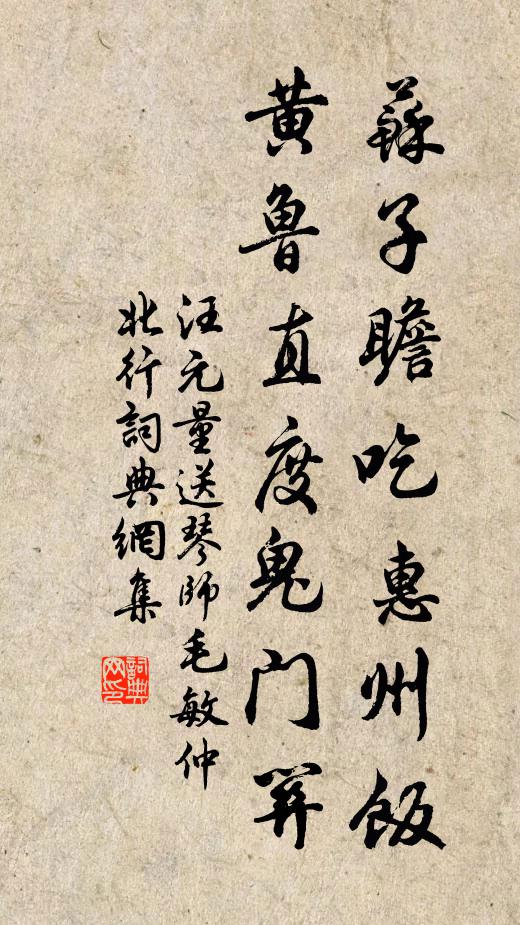 蘇子瞻吃惠州飯
黄魯直度鬼門關
汪元量送琴師毛敏仲
北行詞典網集
詞典網印